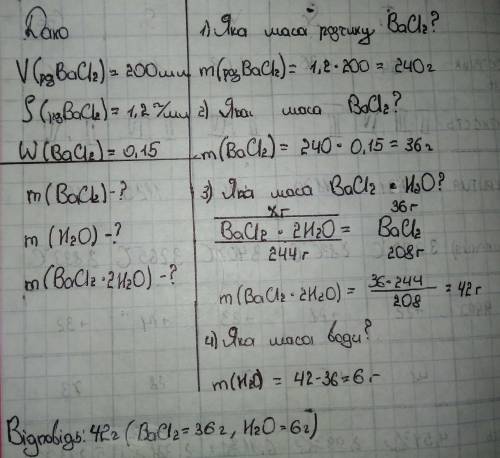 Дано
V(рзBaCl₂) = 200 мл
ρ(рзBaCl₂) = 1,2 г/мл
W(BaCl₂) = 0,15
m(BaCl₂) - ?
m (H₂O) - ?
m(BaCl₂·2H₂O) - ?
1) Яка маса розчину BaCl₂?
m(розBaCl₂) = 1,2·200 = 240 г
2) Яка маса BaCl₂?
m(BaCl₂) = 240 · 0,15 = 36 г
3) Яка маса BaCl₂ · H₂O?
xг 36 г
BaCl₂ · 2H₂O = BaCl₂
244 г 208 г
m(BaCl₂·2H₂O) = 36·244 / 208 = 42 г
4) Яка маса води?
m(H₂O) = 42-36=6 г
Відповідь: 42г (BaCl₂ = 36г, H₂O = 6г)